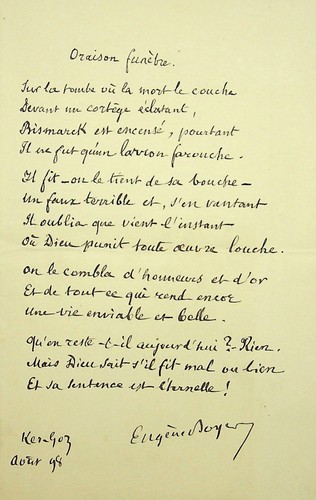 Oraison funèbre.
Sur la tombe où la mort le couche
Devant un cortège éclatant,
Bismarck est encensé, pourtant
Il ne fut qu'un larron farouche.
Il fit – on le tient de sa bouche –
Un faux terrible et, s'en vantant
Il oublia que vient l'instant
Où Dieu punit toute œuvre louche.
On le combla d'honneurs et d'or
Et de tout ce qui rend encor
Une vie enviable et belle.
Qu'en reste-t-il aujourd'hui ? – Rien.
Mais Dieu sait s'il fit mal ou bien
Et sa sentence est éternelle !
Ker-Goz
Août 98
Eugène Boyer